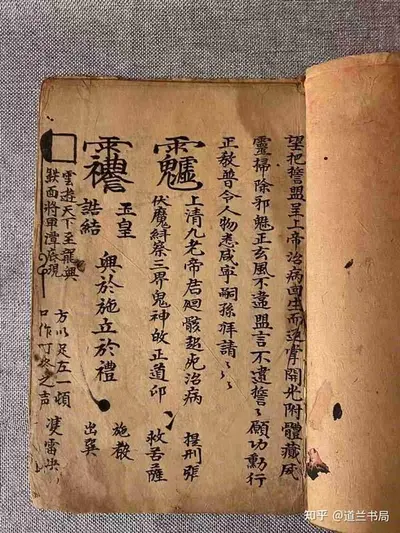 望把誓盟呈上帝治病回生而逐掌開光附體藏風
靈掃除邪魅正玄風不違盟言不違誓願功勳行
正教普令人物悉咸寧嗣孫拜請
上清九老帝君廻骸起死治病
伏魔斜察三界鬼神故正道印
提刑張
救苦薩
玉皇
誥結
興於施立於禮
施教
出巽
雲遊天下至龍興
默面將甲潭底現
方以足左一頓
口作丁女之声
雙雷決
知乎 @道兰书局